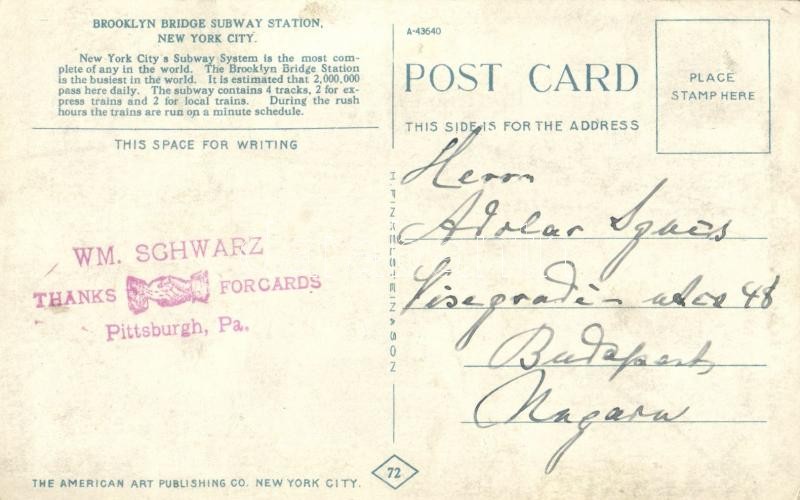 BROOKLYN BRIDGE SUBWAY STATION,
NEW YORK CITY.
New York City's Subway System is the most com-
plete of any in the world. The Brooklyn Bridge Station
is the busiest in the world. It is estimated that 2,000,000
pass here daily. The subway contains 4 tracks, 2 for ex-
press trains and 2 for local trains. During the rush
hours the trains are run on a minute schedule.
THIS SPACE FOR WRITING
WM. SCHWARZ
THANKS FOR CARDS
Pittsburgh, Pa.
THE AMERICAN ART PUBLISHING CO. NEW YORK CITY.
H. FINKELSTEIN & SON
72
A-43640
POST CARD
THIS SIDE IS FOR THE ADDRESS
PLACE
STAMP HERE
Herrn
Adolar
48
Budapest